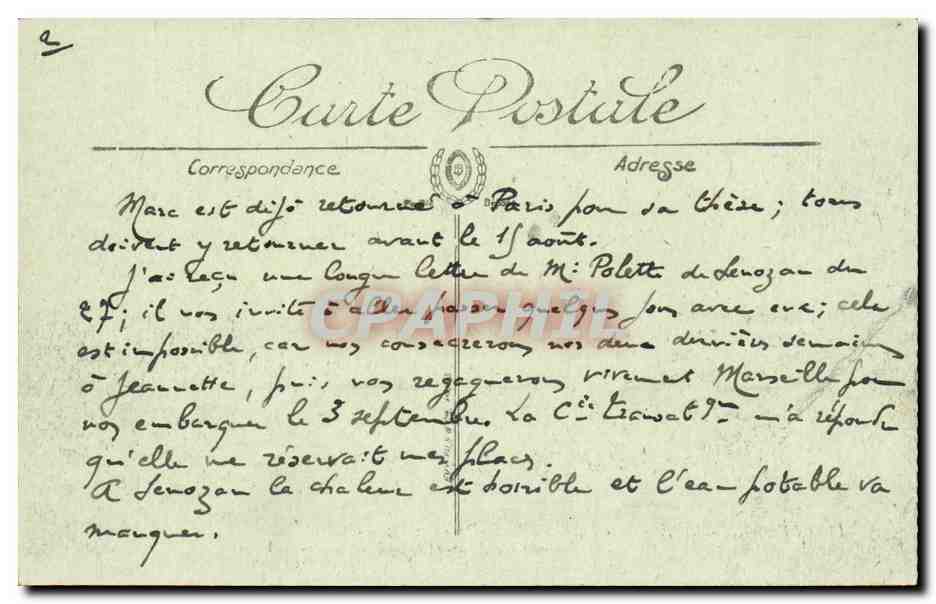 2
Carte Postale
Correspondance
Adresse
Marc est déjà retourné à Paris pour sa thèse; tous
doivent y retourner avant le 15 août.
J'ai reçu une longue lettre de Mr Polette de Senozan du
27; il nous invite à aller passer quelques jours avec eux; cela
est impossible, car nous consacrerons nos deux dernières semaines
à Jeannette, puis nous regagnerons vivement Marseille pour
nous embarquer le 3 septembre. La Cie Transatque m'a répondu
qu'elle me réservait mes places.
A Senozan la chaleur est horrible et l'eau potable va
manquer.
CPAPHIL